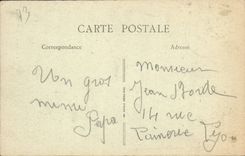 73
CARTE POSTALE
Correspondance
Adresse
Un gros
mimi
Papa
Monsieur
Jean Borde
14 rue
Lyon